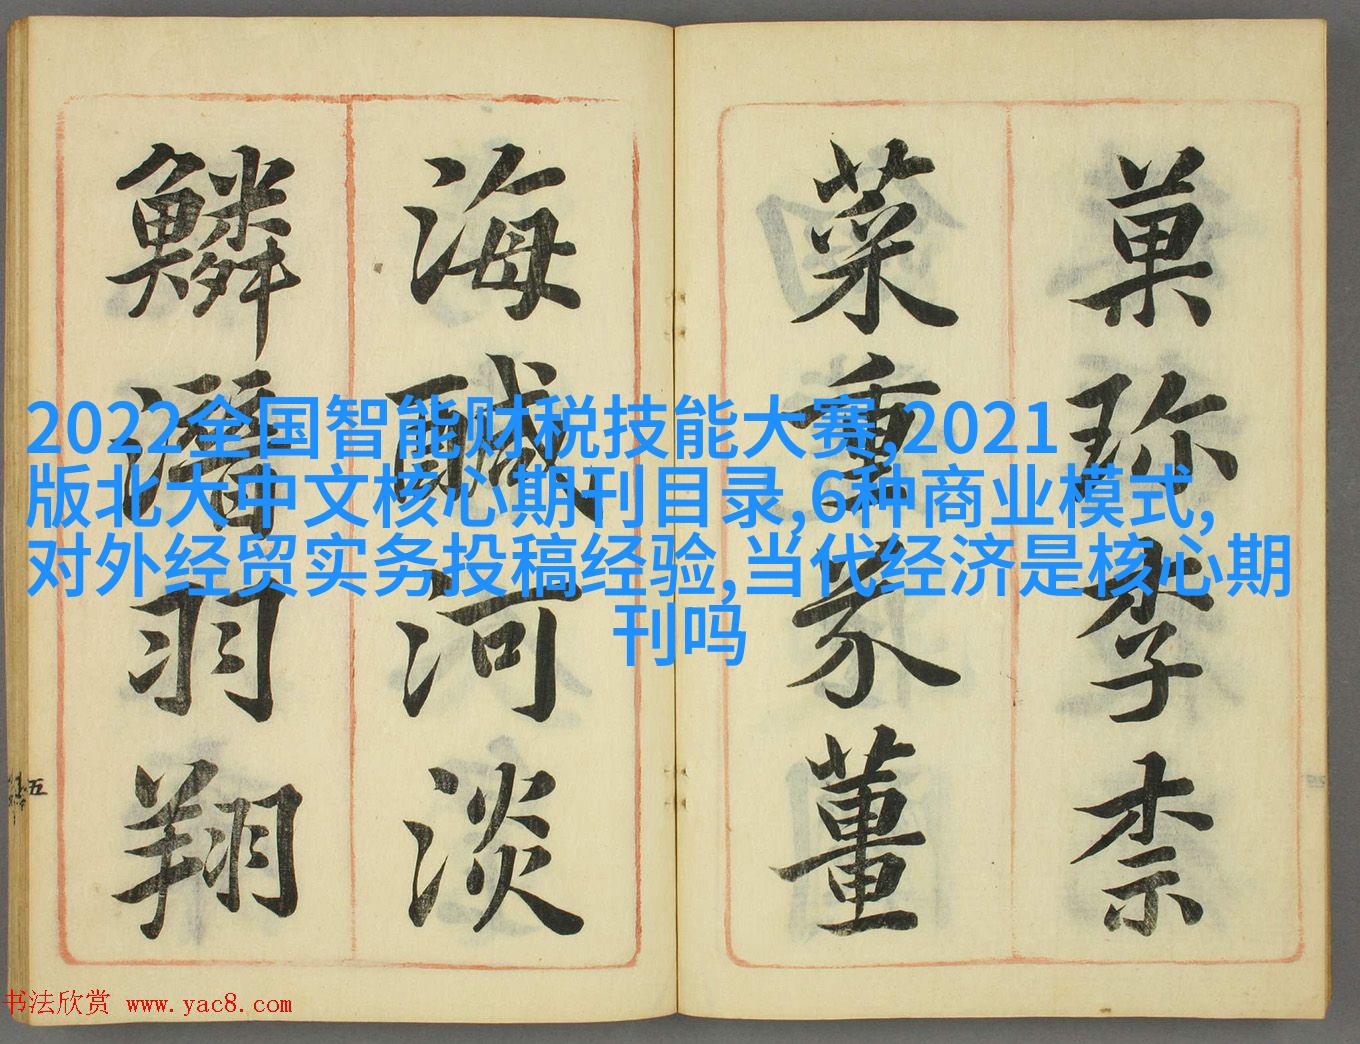 2022全国智能财税技能大赛,2021
版北大中文核心期刊目录,6种商业模式,
对外经贸实务投稿经验,当代经济是核心期
刊吗
菓珎李柰
菜重芥薑
海鹹河淡
鱗潛羽翔
五
书法欣赏 www.yac8.com